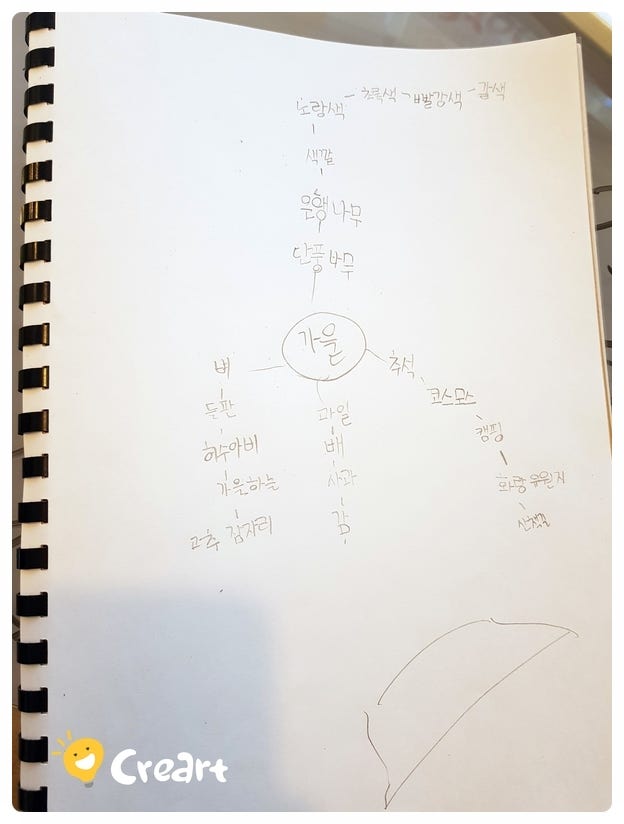 노랑색 - 초록색 - 빨강색 - 갈색
색깔
은행나무
단풍나무
가을
벼
들판
허수아비
가을하늘
고추잠자리
과일
배
사과
감
추석
코스모스
캠핑
화랑유원지
산책길
Creart